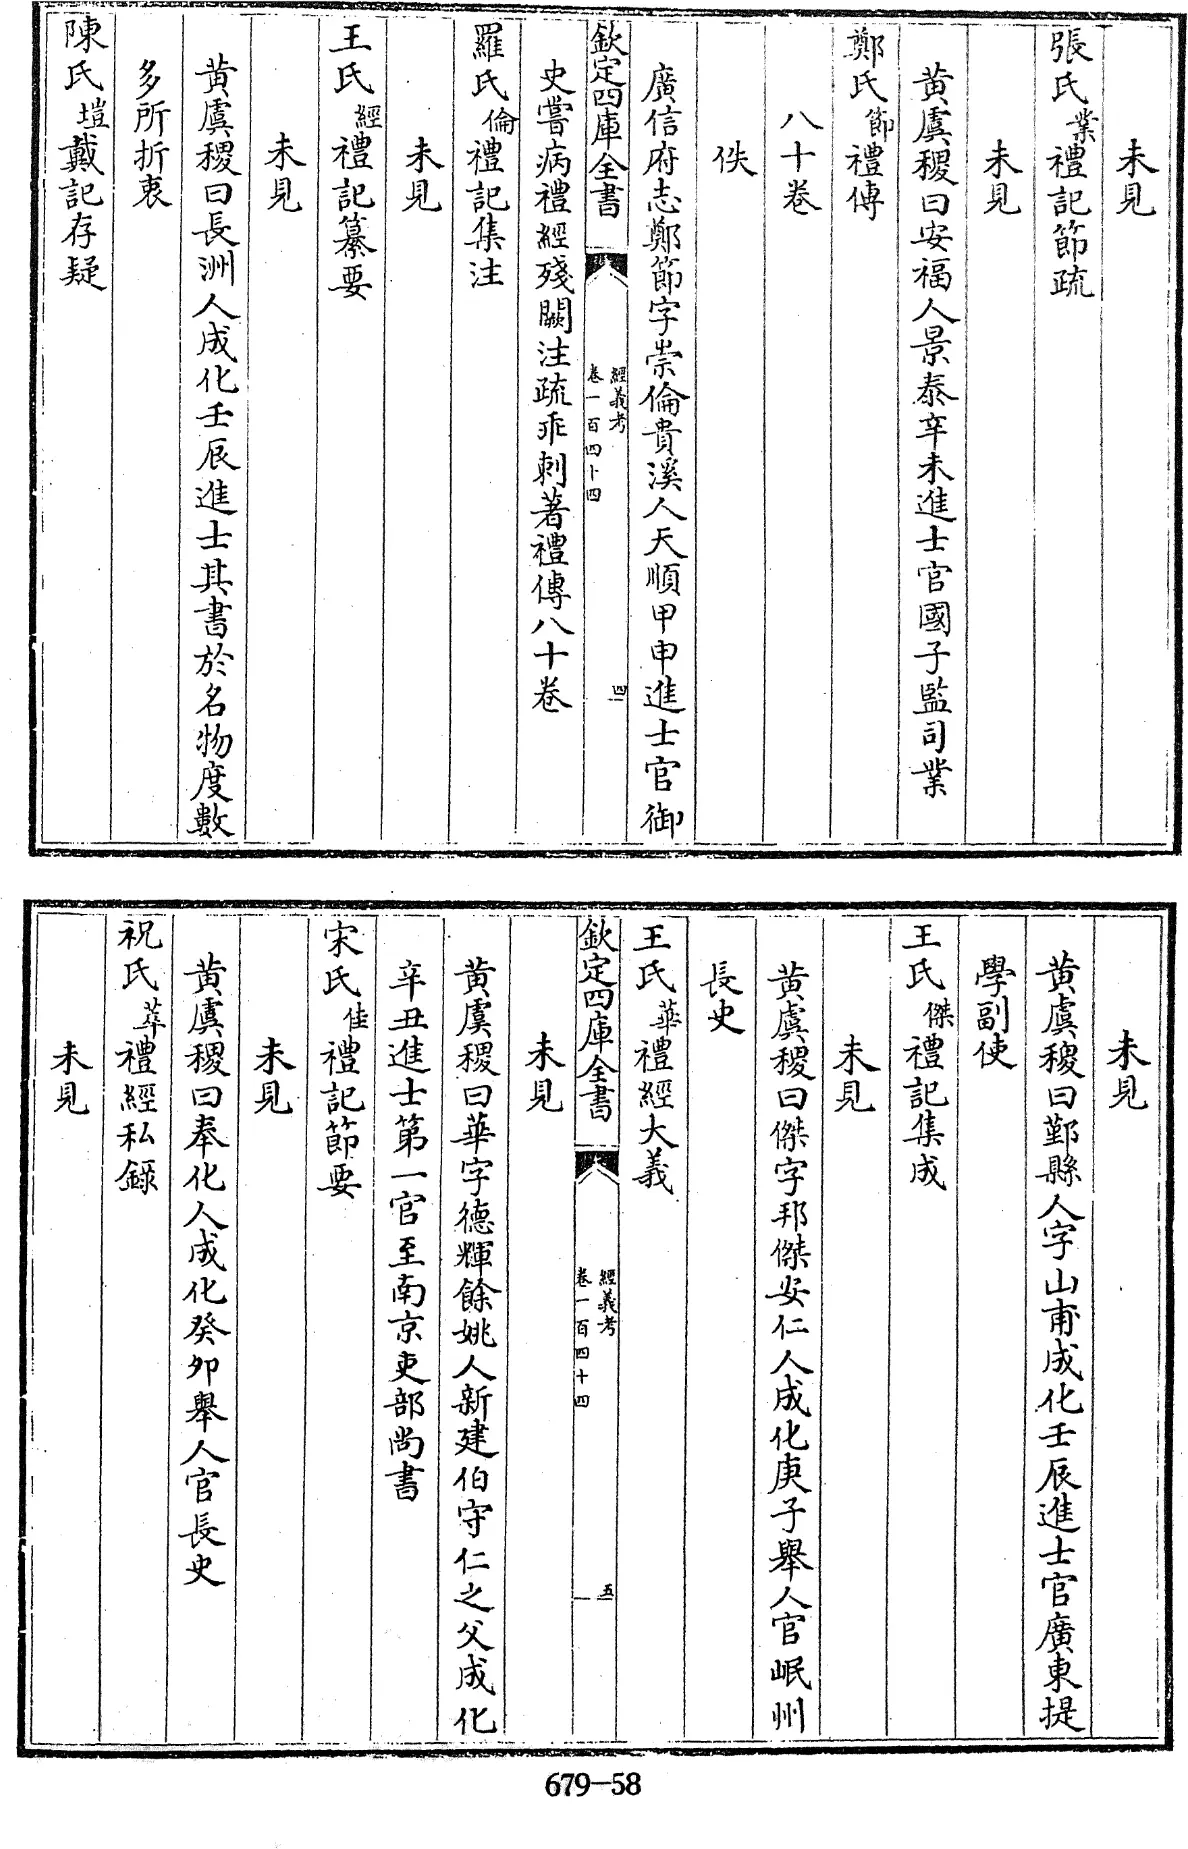 未見
張氏業禮記節疏
未見
黃虞稷曰安福人景泰辛未進士官國子監司業
鄭氏節禮傳
八十卷
佚
廣信府志鄭節字崇倫貴溪人天順甲申進士官御
欽定四庫全書
經義考
卷一百四十四
四
史嘗病禮經殘闕注疏乖刺著禮傳八十卷
羅氏倫禮記集注
未見
王氏經禮記纂要
未見
黃虞稷曰長洲人成化壬辰進士其書於名物度數
多所折衷
陳氏塏戴記存疑
未見
黃虞稷曰鄞縣人字山甫成化壬辰進士官廣東提
學副使
王氏傑禮記集成
未見
黃虞稷曰傑字邦傑安仁人成化庚子舉人官岷州
長史
王氏華禮經大義
欽定四庫全書
經義考
卷一百四十四
五
未見
黃虞稷曰華字德輝餘姚人新建伯守仁之父成化
辛丑進士第一官至南京吏部尚書
宋氏佳禮記節要
未見
黃虞稷曰奉化人成化癸卯舉人官長史
祝氏萃禮經私錄
未見
679-58